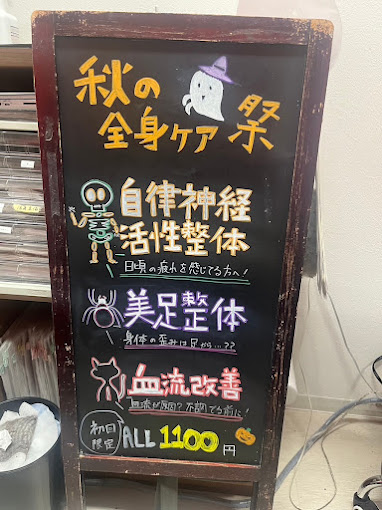 秋の
全身ケア祭
自律神経
活性整体
日頃の疲れを感じてる方へ！
美足整体
身体の歪みは足から…??
血流改善
血流が原因？不調でる前に！
初回
限定
ALL 1100円